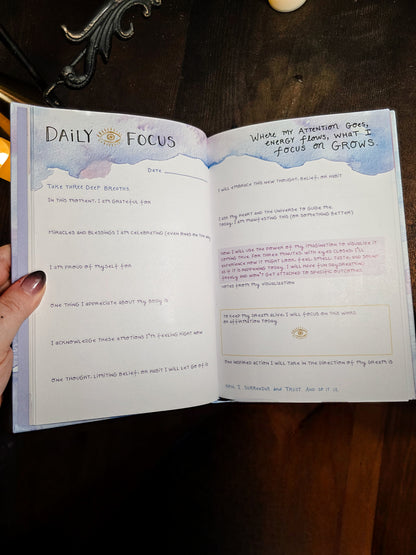 DAILY FOCUS
DATE
TAKE THREE DEEP BREATHS
IN THIS MOMENT, I AM GRATEFUL FOR
MIRACLES AND BLESSINGS I AM CELEBRATING (EVEN BEFORE THEY
I AM PROUD OF MYSELF FOR
ONE THING I APPRECIATE ABOUT MY BODY IS
I ACKNOWLEDGE THESE EMOTIONS I'M FEELING RIGHT NOW
ONE THOUGHT, LIMITING BELIEF, OR HABIT I WILL LET GO OF IS
WHERE MY ATTENTION GOES,
ENERGY FLOWS, WHAT I
FOCUS ON GROWS.
I WILL EMBRACE THIS NEW THOUGHT, BELIEF, OR HABIT
I ASK MY HEART AND THE UNIVERSE TO GUIDE ME.
TODAY, I AM MANIFESTING THIS (OR SOMETHING BETTER)
NOW I WILL USE THE POWER OF MY IMAGINATION TO VISUALIZE IT
COMING TRUE FOR THREE MINUTES WITH EYES CLOSED. I'LL
EXPERIENCE HOW IT MIGHT LOOK, FEEL, SMELL, TASTE, AND SOUND
AS IF IT IS HAPPENING TODAY. I WILL HAVE FUN DAYDREAMING
FREELY AND WON'T GET ATTACHED TO SPECIFIC OUTCOMES.
NOTES FROM MY VISUALIZATION
TO KEEP MY DREAM ALIVE, I WILL FOCUS ON THIS WORD
OR AFFIRMATION TODAY
ONE INSPIRED ACTION I WILL TAKE IN THE DIRECTION OF MY DREAM IS
NOW, I SURRENDER AND TRUST. AND SO IT IS.